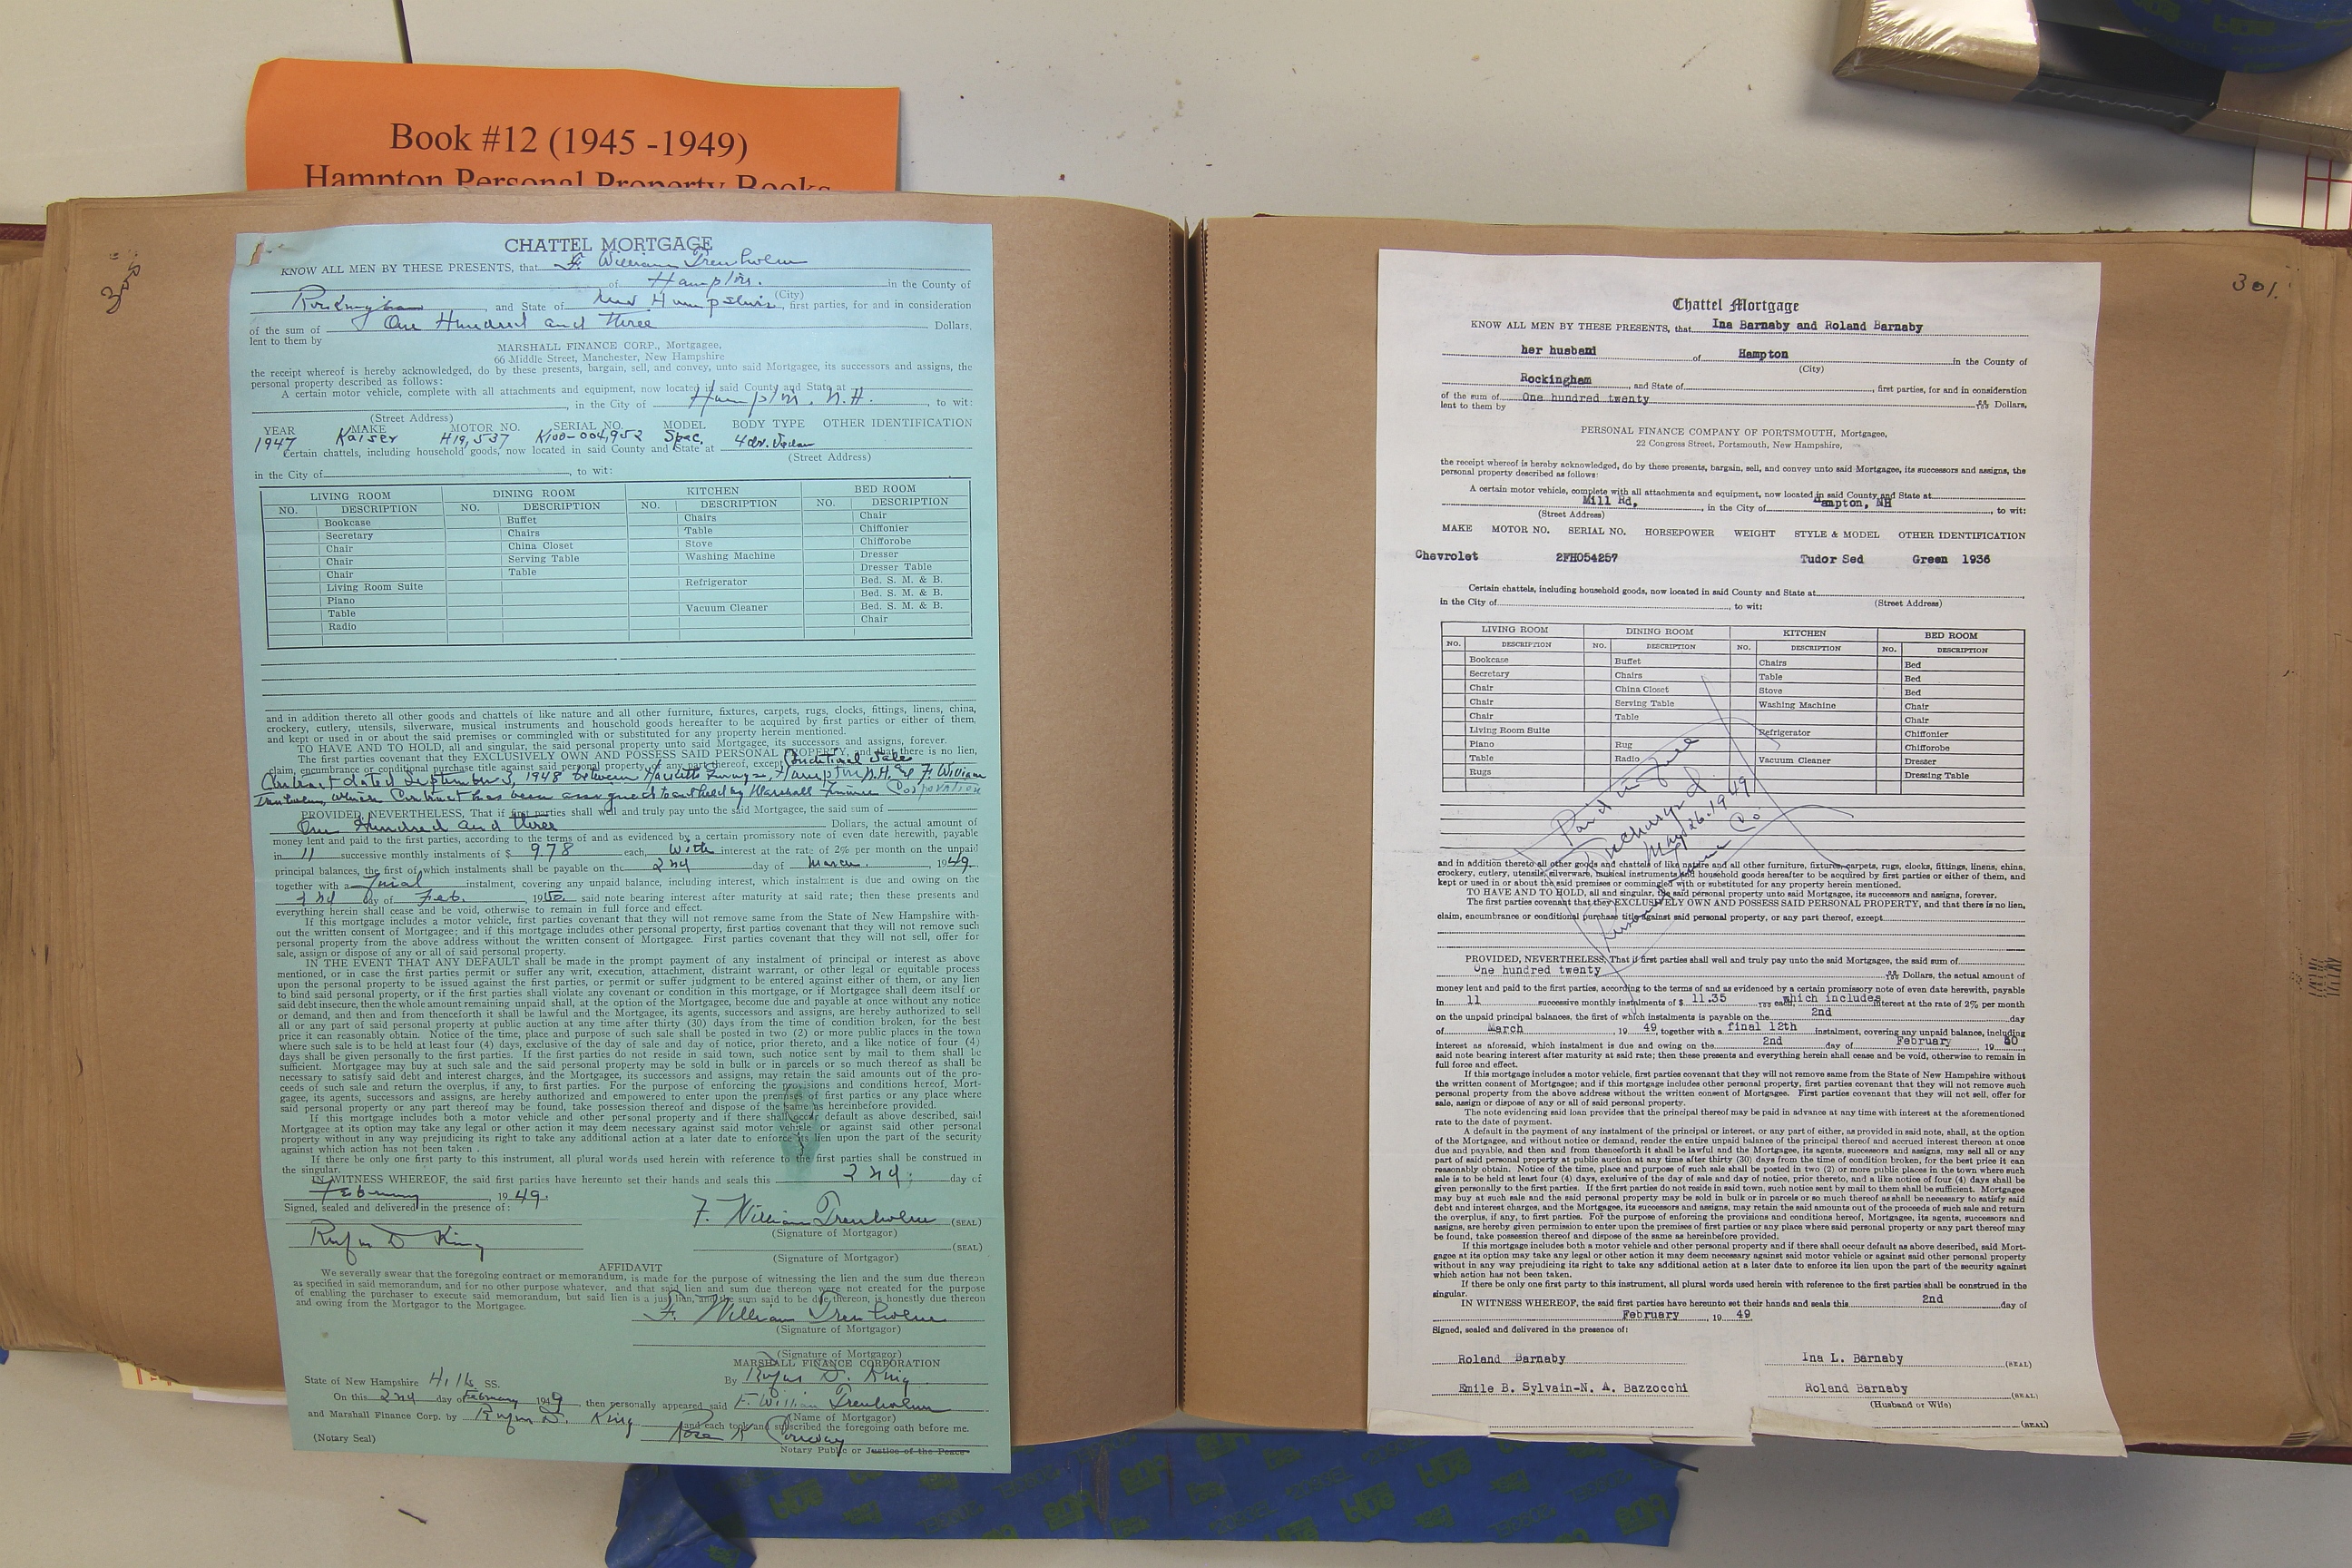 Book #12 (1945 -1949)
Hampton Personal Property Books
300.
CHATTEL MORTGAGE
KNOW ALL MEN BY THESE PRESENTS, that F. William Trenholm
of Hampton. in the County of
(City)
Rockingham, and State of New Hampshire, first parties, for and in consideration
of the sum of One Hundred and three Dollars,
lent to them by
MARSHALL FINANCE CORP., Mortgagee,
66 Middle Street, Manchester, New Hampshire
the receipt whereof is hereby acknowledged, do by these presents, bargain, sell, and convey, unto said Mortgagee, its successors and assigns, the
personal property described as follows:
A certain motor vehicle, complete with all attachments and equipment, now located in said County and State at
, in the City of Hampton, N.H. , to wit:
(Street Address)
YEAR MAKE MOTOR NO. SERIAL NO. MODEL BODY TYPE OTHER IDENTIFICATION
1947 Kaiser H19,537 K100-004,952 Spec. 4dr. Sedan
Certain chattels, including household goods, now located in said County and State at
(Street Address)
in the City of , to wit:
LIVING ROOM DINING ROOM KITCHEN BED ROOM
NO. DESCRIPTION NO. DESCRIPTION NO. DESCRIPTION NO. DESCRIPTION
Bookcase Buffet Chairs Chair
Secretary Chairs Table Chiffonier
Chair China Closet Stove Chifforobe
Chair Serving Table Washing Machine Dresser
Chair Table Dresser Table
Living Room Suite Refrigerator Bed. S. M. & B.
Piano Bed. S. M. & B.
Table Vacuum Cleaner Bed. S. M. & B.
Radio Chair
and in addition thereto all other goods and chattels of like nature and all other furniture, fixtures, carpets, rugs, clocks, fittings, linens, china,
crockery, cutlery, utensils, silverware, musical instruments and household goods hereafter to be acquired by first parties or either of them,
and kept or used in or about the said premises or commingled with or substituted for any property herein mentioned.
TO HAVE AND TO HOLD, all and singular, the said personal property unto said Mortgagee, its successors and assigns, forever.
The first parties covenant that they EXCLUSIVELY OWN AND POSSESS SAID PERSONAL PROPERTY, and that there is no lien,
claim, encumbrance or conditional purchase title against said personal property, or any part thereof, except Conditional Sale
Contract dated September 3, 1948 between Garage, Hampton N.H. & F. William
Trenholm, which Contract has been assigned to and held by Marshall Finance Corporation
PROVIDED, NEVERTHELESS, That if first parties shall well and truly pay unto the said Mortgagee, the said sum of
One Hundred and three Dollars, the actual amount of
money lent and paid to the first parties, according to the terms of and as evidenced by a certain promissory note of even date herewith, payable
in 11 successive monthly instalments of $ 9.78 each, with interest at the rate of 2% per month on the unpaid
principal balances, the first of which instalments shall be payable on the 2nd day of March. , 1949.
together with a Final instalment, covering any unpaid balance, including interest, which instalment is due and owing on the
2nd day of Feb. , 1950. said note bearing interest after maturity at said rate; then these presents and
everything herein shall cease and be void, otherwise to remain in full force and effect.
If this mortgage includes a motor vehicle, first parties covenant that they will not remove same from the State of New Hampshire with-
out the written consent of Mortgagee; and if this mortgage includes other personal property, first parties covenant that they will not remove such
personal property from the above address without the written consent of Mortgagee. First parties covenant that they will not sell, offer for
sale, assign or dispose of any or all of said personal property.
IN THE EVENT THAT ANY DEFAULT shall be made in the prompt payment of any instalment of principal or interest as above
mentioned, or in case the first parties permit or suffer any writ, execution, attachment, distraint warrant, or other legal or equitable process
upon the personal property to be issued against the first parties, or permit or suffer judgment to be entered against either of them, or any lien
to bind said personal property, or if the first parties shall violate any covenant or condition in this mortgage, or if Mortgagee shall deem itself or
said debt insecure, then the whole amount remaining unpaid shall, at the option of the Mortgagee, become due and payable at once without any notice
or demand, and then and from thenceforth it shall be lawful and the Mortgagee, its agents, successors and assigns, are hereby authorized to sell
all or any part of said personal property at public auction at any time after thirty (30) days from the time of condition broken, for the best
price it can reasonably obtain. Notice of the time, place and purpose of such sale shall be posted in two (2) or more public places in the town
where such sale is to be held at least four (4) days, exclusive of the day of sale and day of notice, prior thereto, and a like notice of four (4)
days shall be given personally to the first parties. If the first parties do not reside in said town, such notice sent by mail to them shall be
sufficient. Mortgagee may buy at such sale and the said personal property may be sold in bulk or in parcels or so much thereof as shall be
necessary to satisfy said debt and interest charges, and the Mortgagee, its successors and assigns, may retain the said amounts out of the pro-
ceeds of such sale and return the overplus, if any, to first parties. For the purpose of enforcing the provisions and conditions hereof, Mort-
gagee, its agents, successors and assigns, are hereby authorized and empowered to enter upon the premises of first parties or any place where
said personal property or any part thereof may be found, take possession thereof and dispose of the same as hereinbefore provided.
If this mortgage includes both a motor vehicle and other personal property and if there shall occur default as above described, said
Mortgagee at its option may take any legal or other action it may deem necessary against said motor vehicle or against said other personal
property without in any way prejudicing its right to take any additional action at a later date to enforce its lien upon the part of the security
against which action has not been taken .
If there be only one first party to this instrument, all plural words used herein with reference to the first parties shall be construed in
the singular.
IN WITNESS WHEREOF, the said first parties have hereunto set their hands and seals this 2nd; day of
February , 1949.
Signed, sealed and delivered in the presence of:
Rufus D King F. William Trenholm (SEAL)
(Signature of Mortgagor)
(SEAL)
(Signature of Mortgagor)
AFFIDAVIT
We severally swear that the foregoing contract or memorandum, is made for the purpose of witnessing the lien and the sum due thereon
as specified in said memorandum, and for no other purpose whatever, and that said lien and sum due thereon were not created for the purpose
of enabling the purchaser to execute said memorandum, but said lien is a just lien, and the sum said to be due thereon, is honestly due thereon
and owing from the Mortgagor to the Mortgagee.
F. William Trenholm
(Signature of Mortgagor)
(Signature of Mortgagor)
MARSHALL FINANCE CORPORATION
State of New Hampshire Hills SS. By Rufus D. King
On this 2nd day of February 1949, then personally appeared said F. William Trenholm
(Name of Mortgagor)
and Marshall Finance Corp. by Rufus D. King and each took and subscribed the foregoing oath before me.
Rose K Conway
(Notary Seal) Notary Public or Justice of the Peace
301.
Chattel Mortgage
KNOW ALL MEN BY THESE PRESENTS, that Ina Barnaby and Roland Barnaby
her husband of Hampton in the County of
(City)
Rockingham , and State of , first parties, for and in consideration
of the sum of One hundred twenty Dollars,
lent to them by
PERSONAL FINANCE COMPANY OF PORTSMOUTH, Mortgagee,
22 Congress Street, Portsmouth, New Hampshire,
the receipt whereof is hereby acknowledged, do by these presents, bargain, sell, and convey unto said Mortgagee, its successors and assigns, the
personal property described as follows:
A certain motor vehicle, complete with all attachments and equipment, now located in said County and State at
Mill Rd, , in the City of Hampton, NH , to wit:
(Street Address)
MAKE MOTOR NO. SERIAL NO. HORSEPOWER WEIGHT STYLE & MODEL OTHER IDENTIFICATION
Chevrolet 2FH054257 Tudor Sed Green 1936
Certain chattels, including household goods, now located in said County and State at
in the City of , to wit: (Street Address)
LIVING ROOM DINING ROOM KITCHEN BED ROOM
NO. DESCRIPTION NO. DESCRIPTION NO. DESCRIPTION NO. DESCRIPTION
Bookcase Buffet Chairs Bed
Secretary Chairs Table Bed
Chair China Closet Stove Bed
Chair Serving Table Washing Machine Chair
Chair Table Chair
Living Room Suite Refrigerator Chiffonier
Piano Rug Chifforobe
Table Radio Vacuum Cleaner Dresser
Rugs Dressing Table
Paid in full
Discharged
May 26. 1949
Personal Finance Co.
and in addition thereto all other goods and chattels of like nature and all other furniture, fixtures, carpets, rugs, clocks, fittings, linens, china,
crockery, cutlery, utensils, silverware, musical instruments and household goods hereafter to be acquired by first parties or either of them, and
kept or used in or about the said premises or commingled with or substituted for any property herein mentioned.
TO HAVE AND TO HOLD, all and singular, the said personal property unto said Mortgagee, its successors and assigns, forever.
The first parties covenant that they EXCLUSIVELY OWN AND POSSESS SAID PERSONAL PROPERTY, and that there is no lien,
claim, encumbrance or conditional purchase title against said personal property, or any part thereof, except
PROVIDED, NEVERTHELESS, That if first parties shall well and truly pay unto the said Mortgagee, the said sum of
One hundred twenty Dollars, the actual amount of
money lent and paid to the first parties, according to the terms of and as evidenced by a certain promissory note of even date herewith, payable
in 11 successive monthly instalments of $ 11.35 each, which includes interest at the rate of 2% per month
on the unpaid principal balances, the first of which instalments is payable on the 2nd day
of March , 19 49, together with a final 12th instalment, covering any unpaid balance, including
interest as aforesaid, which instalment is due and owing on the 2nd day of February , 19 50,
said note bearing interest after maturity at said rate; then these presents and everything herein shall cease and be void, otherwise to remain in
full force and effect.
If this mortgage includes a motor vehicle, first parties covenant that they will not remove same from the State of New Hampshire without
the written consent of Mortgagee; and if this mortgage includes other personal property, first parties covenant that they will not remove such
personal property from the above address without the written consent of Mortgagee. First parties covenant that they will not sell, offer for
sale, assign or dispose of any or all of said personal property.
The note evidencing said loan provides that the principal thereof may be paid in advance at any time with interest at the aforementioned
rate to the date of payment.
A default in the payment of any instalment of the principal or interest, or any part of either, as provided in said note, shall, at the option
of the Mortgagee, and without notice or demand, render the entire unpaid balance of the principal thereof and accrued interest thereon at once
due and payable, and then and from thenceforth it shall be lawful and the Mortgagee, its agents, successors and assigns, may sell all or any
part of said personal property at public auction at any time after thirty (30) days from the time of condition broken, for the best price it can
reasonably obtain. Notice of the time, place and purpose of such sale shall be posted in two (2) or more public places in the town where such
sale is to be held at least four (4) days, exclusive of the day of sale and day of notice, prior thereto, and a like notice of four (4) days shall be
given personally to the first parties. If the first parties do not reside in said town, such notice sent by mail to them shall be sufficient. Mortgagee
may buy at such sale and the said personal property may be sold in bulk or in parcels or so much thereof as shall be necessary to satisfy said
debt and interest charges, and the Mortgagee, its successors and assigns, may retain the said amounts out of the proceeds of such sale and return
the overplus, if any, to first parties. For the purpose of enforcing the provisions and conditions hereof, Mortgagee, its agents, successors and
assigns, are hereby given permission to enter upon the premises of first parties or any place where said personal property or any part thereof may
be found, take possession thereof and dispose of the same as hereinbefore provided.
If this mortgage includes both a motor vehicle and other personal property and if there shall occur default as above described, said Mort-
gagee at its option may take any legal or other action it may deem necessary against said motor vehicle or against said other personal property
without in any way prejudicing its right to take any additional action at a later date to enforce its lien upon the part of the security against
which action has not been taken.
If there be only one first party to this instrument, all plural words used herein with reference to the first parties shall be construed in the
singular.
IN WITNESS WHEREOF, the said first parties have hereunto set their hands and seals this 2nd day of
February , 19 49
Signed, sealed and delivered in the presence of:
Roland Barnaby Ina L. Barnaby (SEAL)
Emile B. Sylvain-N. A. Bazzocchi Roland Barnaby (SEAL)
(Husband or Wife)
(SEAL)